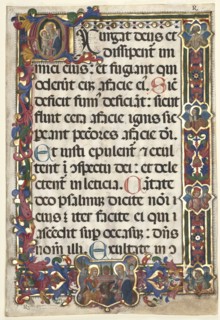 Exurgat deus et
dissipent̄ ini
mici eius: et fugiant qui
oderūt eū, a facie ei. Sic̄
deficit fum⁹ deficiāt: sicut
fluit cera a facie ignis sic
peant pccōres a facie dī.
Et iusti epulent̄ et exul
tent ī ꝯspectu dei: et dele
ctent̄ in leticia. Cātate
deo psalmū dicite noī
eius: iter facite ei qui
ascēdit sup occasū: dn̄s
nom̄ illi. Exultate in ꝯ